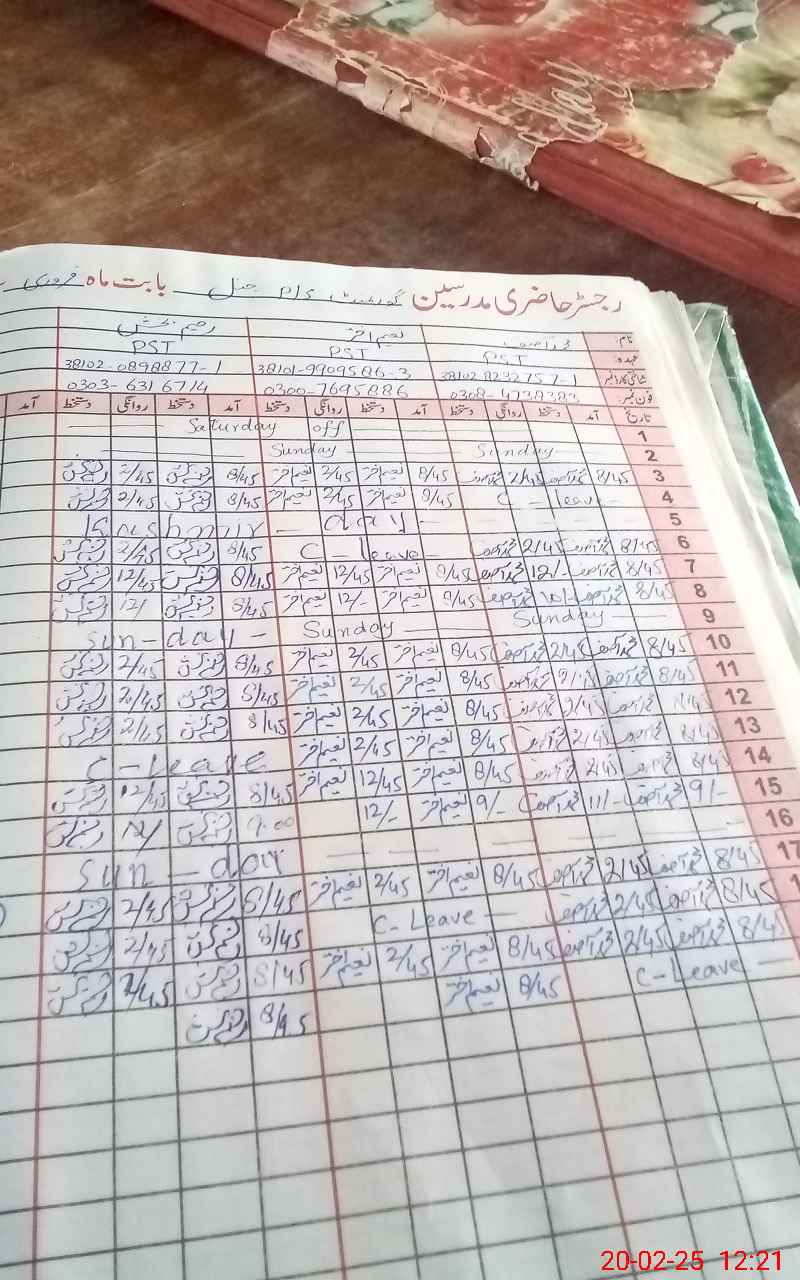 رجسٹر حاضری مدرسین گورنمنٹ P/S بابت ماہ فروری
نام: محمد آصف نعیم اختر رحیم بخش
عہدہ: PST PST PST
شناختی کارڈ نمبر 38102-8232757-1 38101-9909586-3 38102-0898877-1
فون نمبر: 0308-4738383 0300-7695886 0303-6316714
تاریخ آمد دستخط روانگی دستخط آمد دستخط روانگی دستخط آمد دستخط روانگی دستخط آمد
1 Saturday off
2 Sunday Sunday
3 8/45 محمد آصف 2/45 محمد آصف 8/45 نعیم اختر 2/45 نعیم اختر 8/45 رحیم بخش 2/45 رحیم بخش
4 C-leave 8/45 نعیم اختر 2/45 نعیم اختر 8/45 رحیم بخش 2/45 رحیم بخش
5 Kashmir day
6 8/45 محمد آصف 2/45 محمد آصف C-leave 8/45 رحیم بخش 2/45 رحیم بخش
7 8/45 محمد آصف 12/- محمد آصف 8/45 نعیم اختر 12/45 نعیم اختر 8/45 رحیم بخش 12/45 رحیم بخش
8 8/45 محمد آصف محمد آصف 8/45 نعیم اختر 12/- نعیم اختر 8/45 رحیم بخش 12/ رحیم بخش
9 Sunday Sunday Sun-day
10 8/45 محمد آصف 2/45 محمد آصف 8/45 نعیم اختر 2/45 نعیم اختر 8/45 رحیم بخش 2/45 رحیم بخش
11 8/45 محمد آصف محمد آصف 8/45 نعیم اختر 2/45 نعیم اختر 8/45 رحیم بخش 2/45 رحیم بخش
12 8/45 محمد آصف 2/45 محمد آصف 8/45 نعیم اختر 2/45 نعیم اختر 8/45 رحیم بخش 2/45 رحیم بخش
13 8/45 محمد آصف 2/45 محمد آصف 8/45 نعیم اختر 2/45 نعیم اختر C-leave
14 8/45 محمد آصف محمد آصف 8/45 نعیم اختر 12/45 نعیم اختر 8/45 رحیم بخش 12/45 رحیم بخش
15 9/- محمد آصف 11/- محمد آصف 9/- نعیم اختر 12/- 9:00 رحیم بخش 12/ رحیم بخش
16 Sun-day
17 8/45 محمد آصف 2/45 محمد آصف 8/45 نعیم اختر 2/45 نعیم اختر 8/45 رحیم بخش 2/45 رحیم بخش
1 8/45 محمد آصف 2/45 محمد آصف C-Leave 8/45 رحیم بخش 2/45 رحیم بخش
8/45 محمد آصف 2/45 محمد آصف 8/45 نعیم اختر 2/45 نعیم اختر 8/45 رحیم بخش 2/45 رحیم بخش
C-Leave 8/45 نعیم اختر 8/45 رحیم بخش
20-02-25 12:21